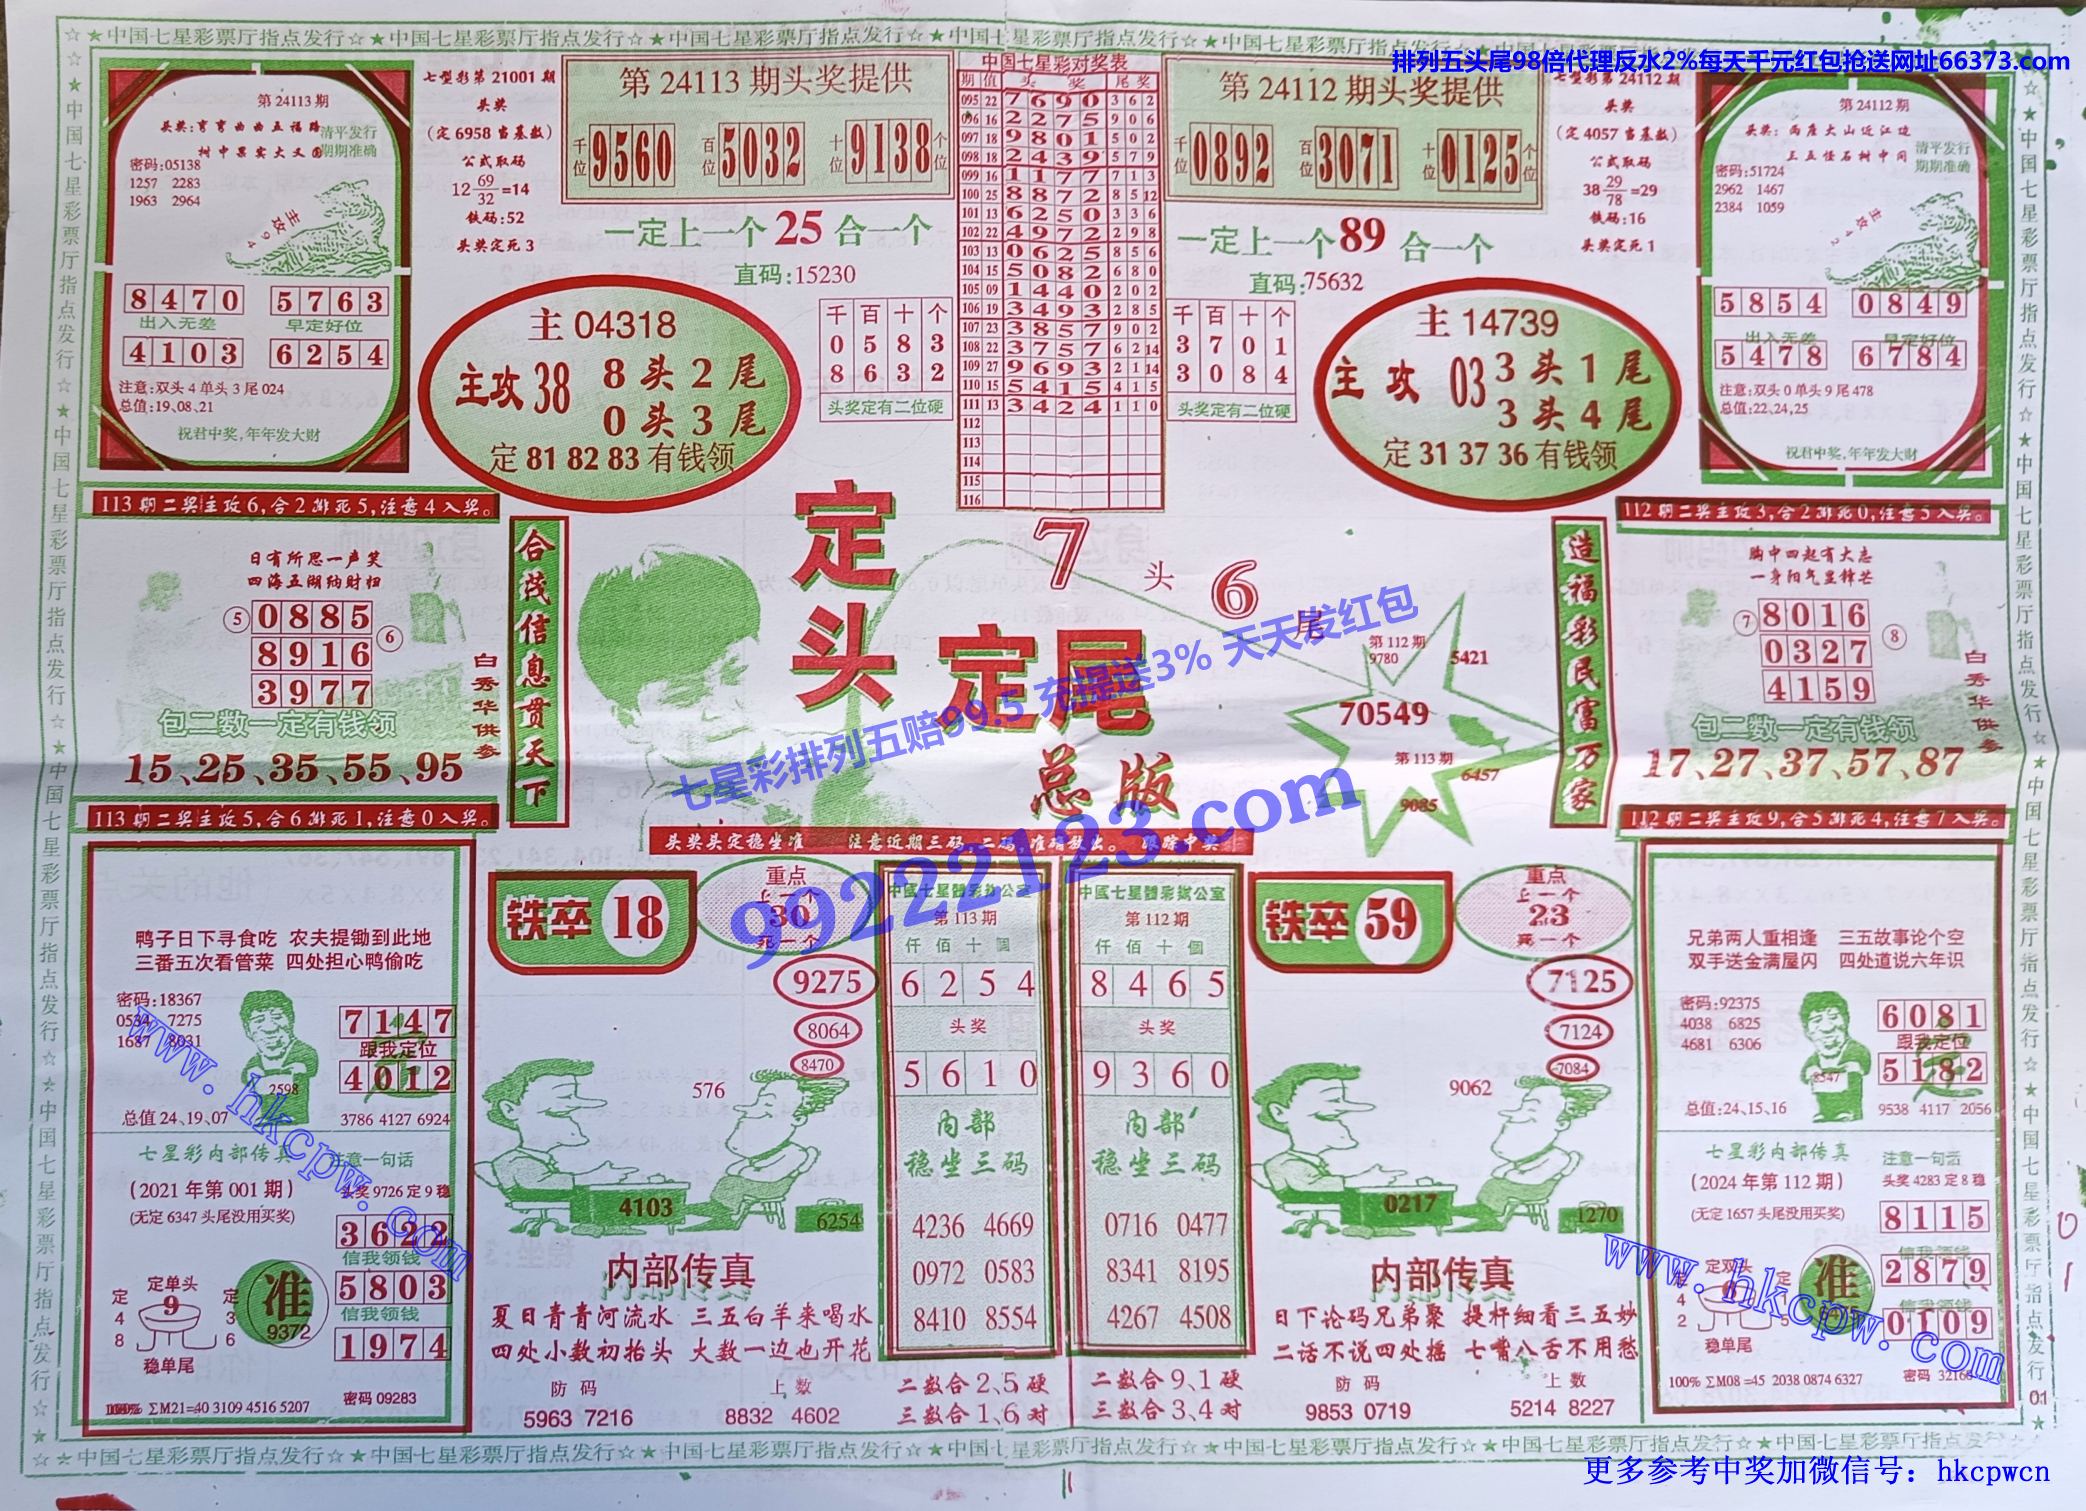 ☆★中国七星彩票厅指点发行☆★中国七星彩票厅指点发行☆★中国七星彩票厅指点发行☆★中国七星彩票厅指点发行☆
排列五头尾98倍代理反水2%每天千元红包抢送网址66373.com
第24113期
头奖:弯弯曲曲五福路
树中果实大又圆
清平发行
期期准确
密码:05138
1257 2283
1963 2964
主攻94
8470 5763
出入无差 早定好位
4103 6254
注意:双头4单头3尾024
总值:19,08,21
祝君中奖,年年发大财
七型彩第21001期
头奖
(定6958当基数)
公式取码
12 69/32 =14
铁码:52
头奖定死3
第24113期头奖提供
千位 9560 百位 5032 十位 9138 个位
一定上一个25合一个
直码:15230
千百十个
0583
8632
头奖定有二位硬
主04318
主攻38 8头2尾
0头3尾
定81 82 83有钱领
中国七星彩对奖表
期 值 头奖 尾奖
095 22 7690 3 6 2
096 16 2275 9 0 6
097 18 9801 5 0 2
098 18 2439 5 7 9
099 16 1177 7 1 3
100 25 8872 8 5 12
101 13 6250 3 3 6
102 22 4972 2 9 8
103 13 0625 8 5 6
104 15 5082 6 8 0
105 09 1440 2 0 2
106 19 3493 2 8 5
107 23 3857 9 0 2
108 22 3757 6 2 14
109 27 9693 2 1 14
110 15 5415 4 1 5
111 13 3424 1 1 0
112
113
114
115
116
第24112期头奖提供
千位 0892 百位 3071 十位 0125 个位
一定上一个89合一个
直码:75632
千百十个
3701
3084
头奖定有二位硬
主14739
主攻03 3头1尾
3头4尾
定31 37 36有钱领
七型彩第24112期
头奖
(定4057当基数)
公式取码
38 29/78 =29
铁码:16
头奖定死1
第24112期
头奖:两座大山近江边
三五怪石树中间
清平发行
期期准确
密码:51724
2962 1467
2384 1059
主攻42
5854 0849
出入无差 早定好位
5478 6784
注意:双头0单头9尾478
总值:22,24,25
祝君中奖,年年发大财
113期二奖主攻6,合2排死5,注意4入奖。
日有所思一声笑
四海五湖纳财归
⑤ 0885
8916 ⑥
3977
包二数一定有钱领
15、25、35、55、95
白秀华供参
合茂信息贯天下
定头定尾
总版
7头6尾
七星彩排列五赔99.5 充提送3% 天天发红包
99222123.com
第112期
9780
5421
70549
第113期
6457
9085
造福彩民富万家
112期二奖主攻3,合2排死0,注意5入奖。
胸中四起有大志
一身阳气显锋芒
⑦ 8016
0327 ⑧
4159
包二数一定有钱领
17、27、37、57、87
白秀华供参
113期二奖主攻5,合6排死1,注意0入奖。
头奖头定稳坐准 注意近期三码,二码,准确放出。 跟踪中奖
112期二奖主攻9,合5排死4,注意7入奖。
鸭子日下寻食吃 农夫提锄到此地
三番五次看管菜 四处担心鸭偷吃
密码:18367
0534 7275
1687 8031
2598
7147
跟我定位
4012
总值24、19、07
3786 4127 6924
七星彩内部传真 注意一句话
(2021年第001期) 头奖9726定9稳
(无定6347头尾没用买奖)
3622
信我领钱
5803
信我领钱
1974
定单头
9
定48 定36
稳单尾
准
9372
密码09283
100% ΣM21=40 3109 4516 5207
www.hkcpw.com
铁卒18
重点
上一个
30
死一个
9275
8064
8470
576
4103
6254
内部传真
夏日青青河流水 三五白羊来喝水
四处小数初抬头 大数一边也开花
防码 上数
5963 7216 8832 4602
中國七星體彩辦公室
第113期
仟佰十個
6254
头奖
5610
内部
稳坐三码
4236 4669
0972 0583
8410 8554
二数合2、5硬
三数合1、6对
中國七星體彩辦公室
第112期
仟佰十個
8465
头奖
9360
内部
稳坐三码
0716 0477
8341 8195
4267 4508
二数合9、1硬
三数合3、4对
铁卒59
重点
上一个
23
死一个
7125
7124
7084
9062
0217
1270
内部传真
日下论码兄弟聚 提杆细看三五妙
二话不说四处摇 七嘴八舌不用愁
防码 上数
9853 0719 5214 8227
兄弟两人重相逢 三五故事论个空
双手送金满屋闪 四处道说六年识
密码:92375
4038 6825
4681 6306
8547
6081
跟我定位
5182
总值:24、15、16
9538 4117 2056
七星彩内部传真 注意一句话
(2024年第112期) 头奖4283定8稳
(无定1657头尾没用买奖)
8115
信我领钱
2879
信我领钱
0109
定双头
稳单尾
准
100% ΣM08=45 2038 0874 6327
www.hkcpw.com
01
☆★中国七星彩票厅指点发行☆★中国七星彩票厅指点发行☆★中国七星彩票厅指点发行☆★中国七星彩票厅指点发行☆
更多参考中奖加微信号：hkcpwcn